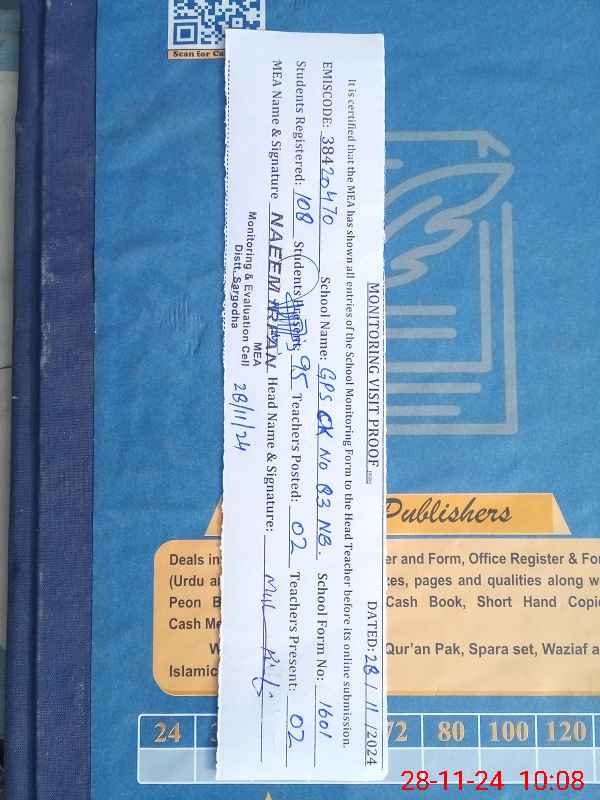 Scan for Ca
MONITORING VISIT PROOF
DATED: 28 / 11 /2024
It is certified that the MEA has shown all entries of the School Monitoring Form to the Head Teacher before its online submission.
EMISCODE: 38420470 School Name: GPS CK No 83 NB. School Form No: 1601
Students Registered: 108 Students Present: 95 Teachers Posted: 02 Teachers Present: 02
MEA Name & Signature NAEEM IRFAN Head Name & Signature:
MEA
Monitoring & Evaluation Cell
Distt. Sargodha
28/11/24
Publishers
Deals in er and Form, Office Register & For
(Urdu a zes, pages and qualities along w
Peon B Cash Book, Short Hand Copie
Cash Me
W Qur'an Pak, Spara set, Waziaf a
Islamic
24 72 80 100 120
28-11-24 10:08